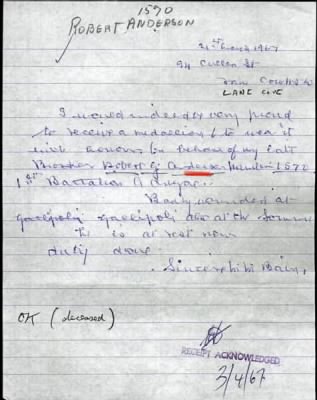 1570
ROBERT ANDERSON
1967
94 Cullen St
LANE COVE
I would indeed be very proud
to receive a medallion & to wear it
with honour on behalf of my late
Brother Robert G Anderson Number 1570
1st Battalion
Badly wounded at
Gallipoli Gallipoli also at the Somme
He is at rest now
duty done.
Sincerely
OK (deceased)
RECEIPT ACKNOWLEDGED
3/4/67